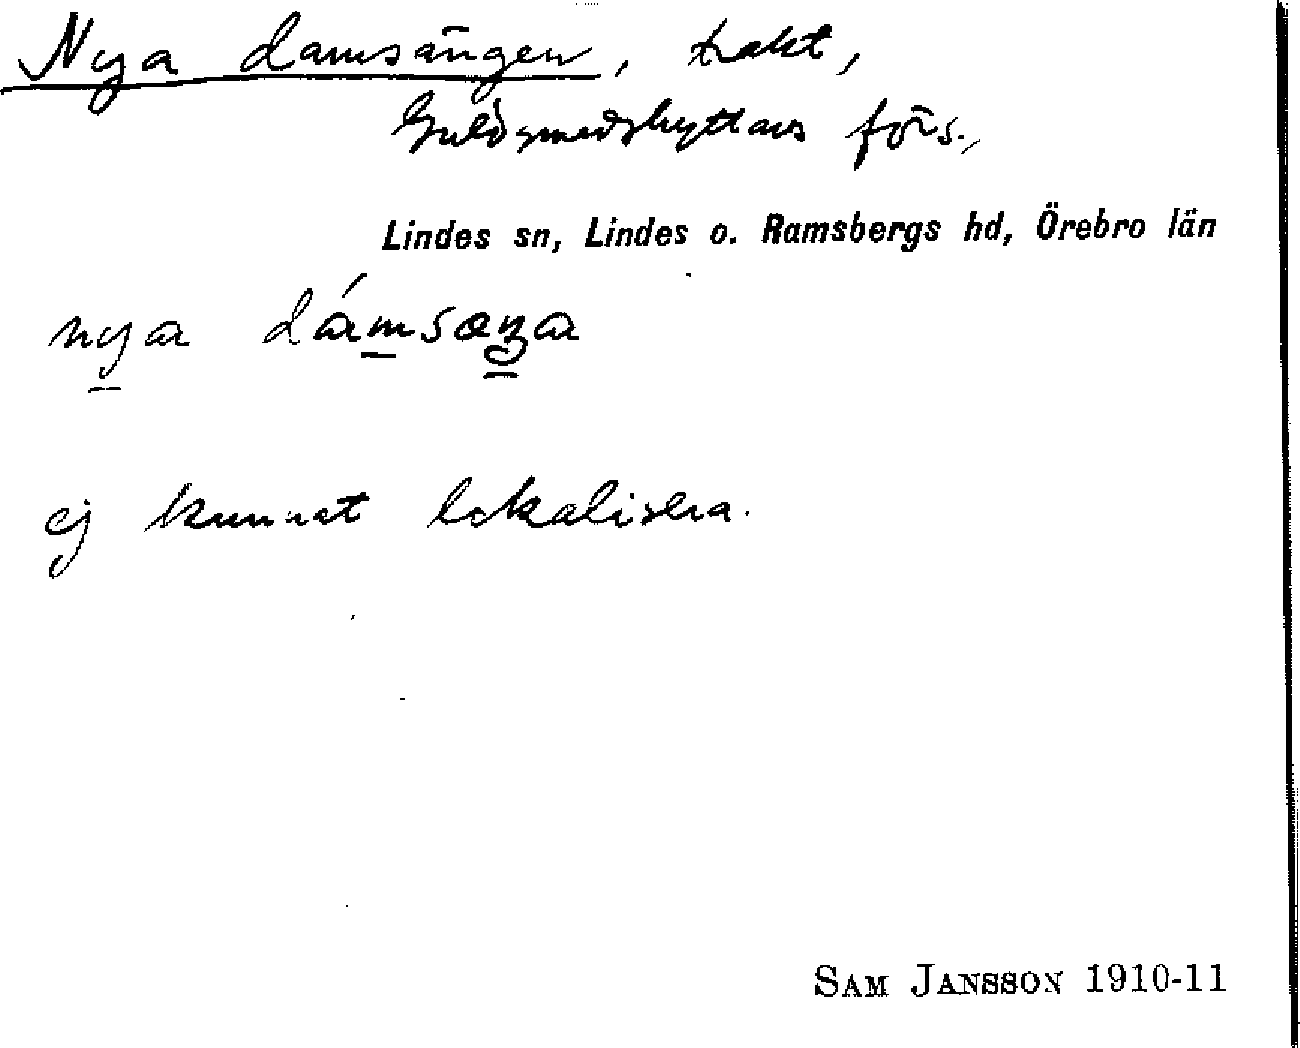 Nya damsängen, trakt,
Guldsmedshyttans förs.,
Lindes sn, Lindes o. Ramsbergs hd, Örebro län
nya dámsæŋa
ej kunnat lokalisera.
SAM JANSSON 1910-11